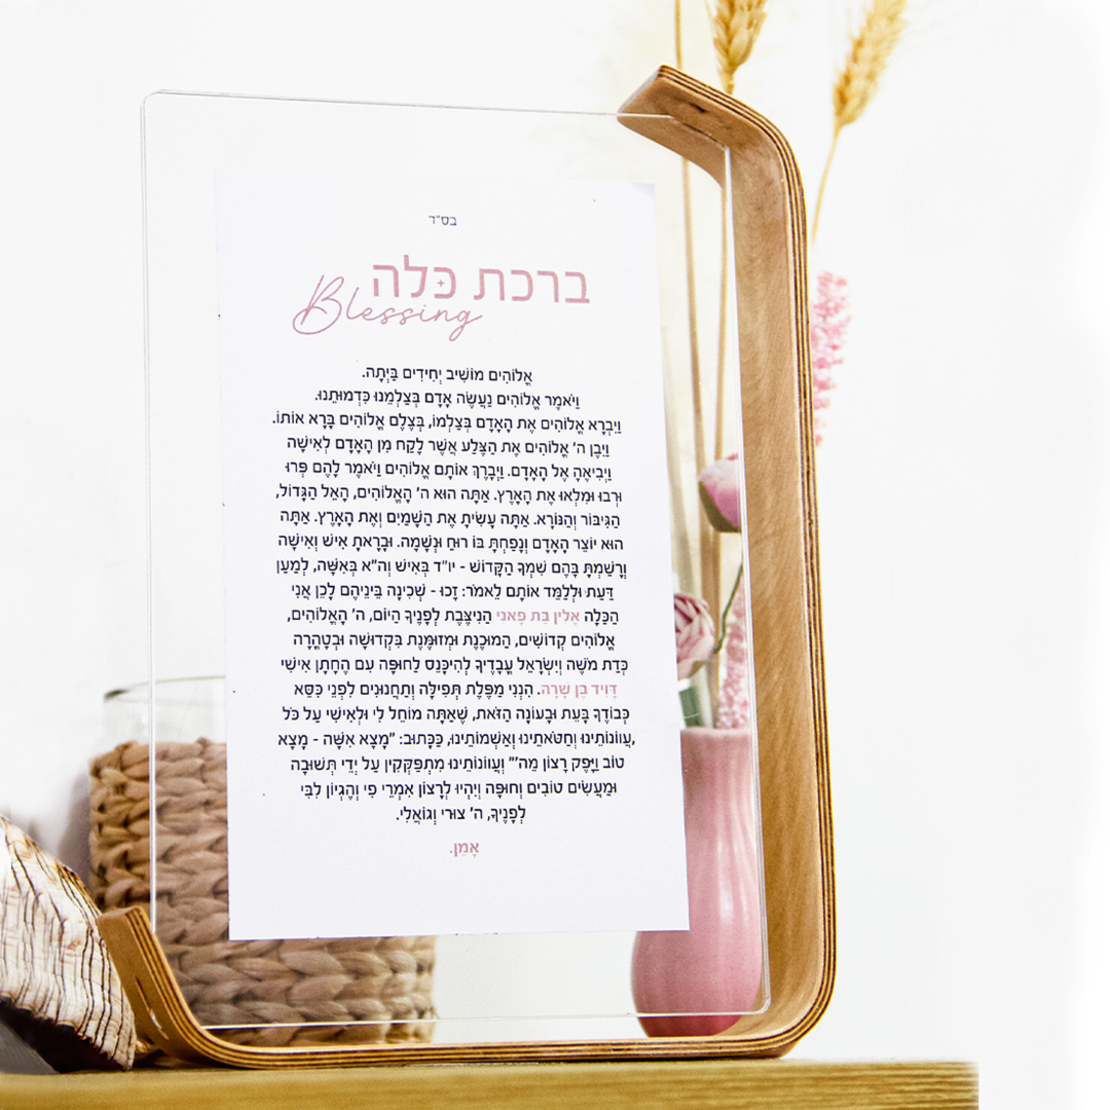 בס״ד
ברכת כּלה
Blessing
אֱלוֹהִים מוֹשִׁיב יְחִידִים בַּיְתָה.
וַיֹּאמֶר אֱלוֹהִים נַעֲשֶׂה אָדָם בְּצַלְמֵנוּ כִּדְמוּתֵנוּ.
וַיִּבְרָא אֱלוֹהִים אֶת הָאָדָם בְּצַלְמוֹ, בְּצֶלֶם אֱלוֹהִים בָּרָא אוֹתוֹ.
וַיִּבֶן ה' אֱלוֹהִים אֶת הַצֶּלַע אֲשֶׁר לָקַח מִן הָאָדָם לְאִישָׁה
וַיְבִיאֶהָ אֶל הָאָדָם. וַיְבָרֶךְ אוֹתָם אֱלוֹהִים וַיֹּאמֶר לָהֶם פְּרוּ
וּרְבוּ וּמִלְאוּ אֶת הָאָרֶץ. אַתָּה הוּא ה' הָאֱלוֹהִים, הָאֵל הַגָּדוֹל,
הַגִּיבּוֹר וְהַנּוֹרָא. אַתָּה עָשִׂיתָ אֶת הַשָּׁמַיִם וְאֶת הָאָרֶץ. אַתָּה
הוּא יוֹצֵר הָאָדָם וְנָפַחְתָּ בּוֹ רוּחַ וּנְשָׁמָה. וּבָרָאתָ אִישׁ וְאִישָׁה
וְרָשַׁמְתָּ בָּהֶם שִׁמְךָ הַקָּדוֹשׁ - יו״ד בְּאִישׁ וְה״א בְּאִשָּׁה, לְמַעַן
דַּעַת וּלְלַמֵּד אוֹתָם לֵאמֹר: זָכוּ - שְׁכִינָה בֵּינֵיהֶם לָכֵן אֲנִי
הַכַּלָּה אֵלִין בַּת פָאנִי הַנִּיצֶּבֶת לְפָנֶיךָ הַיּוֹם, ה' הָאֱלוֹהִים,
אֱלוֹהִים קְדוֹשִׁים, הַמּוּכֶנֶת וּמְזוּמֶּנֶת בִּקְדוּשָׁה וּבְטָהֳרָה
כְּדַת מֹשֶׁה וְיִשְׂרָאֵל עֲבָדֶיךָ לְהִיכָּנֵס לַחוּפָּה עִם הֶחָתָן אִישִׁי
דָּוִיד בֶּן שָׂרָה. הִנְנִי מַפֶּלֶת תְּפִילָּה וְתַחֲנוּנִים לִפְנֵי כִּסֵּא
כְּבוֹדֶךָ בָּעֵת וּבָעוֹנָה הַזֹּאת, שֶׁאַתָּה מוֹחֵל לִי וּלְאִישִׁי עַל כֹּל
עֲוֹנוֹתֵינוּ וְחַטֹּאתֵינוּ וְאַשְׁמוֹתֵינוּ, כַּכָּתוּב: "מָצָא אִשָּׁה - מָצָא,
טוֹב וַיָּפֶק רָצוֹן מֵה'" וַעֲוֹנוֹתֵינוּ מִתְפַּקְּקִין עַל יְדֵי תְּשׁוּבָה
וּמַעֲשִׂים טוֹבִים וְחוּפָּה וְיִהְיוּ לְרָצוֹן אִמְרֵי פִי וְהֶגְיוֹן לִבִּי
לְפָנֶיךָ, ה' צוּרִי וְגוֹאֲלִי.
אָמֵן.